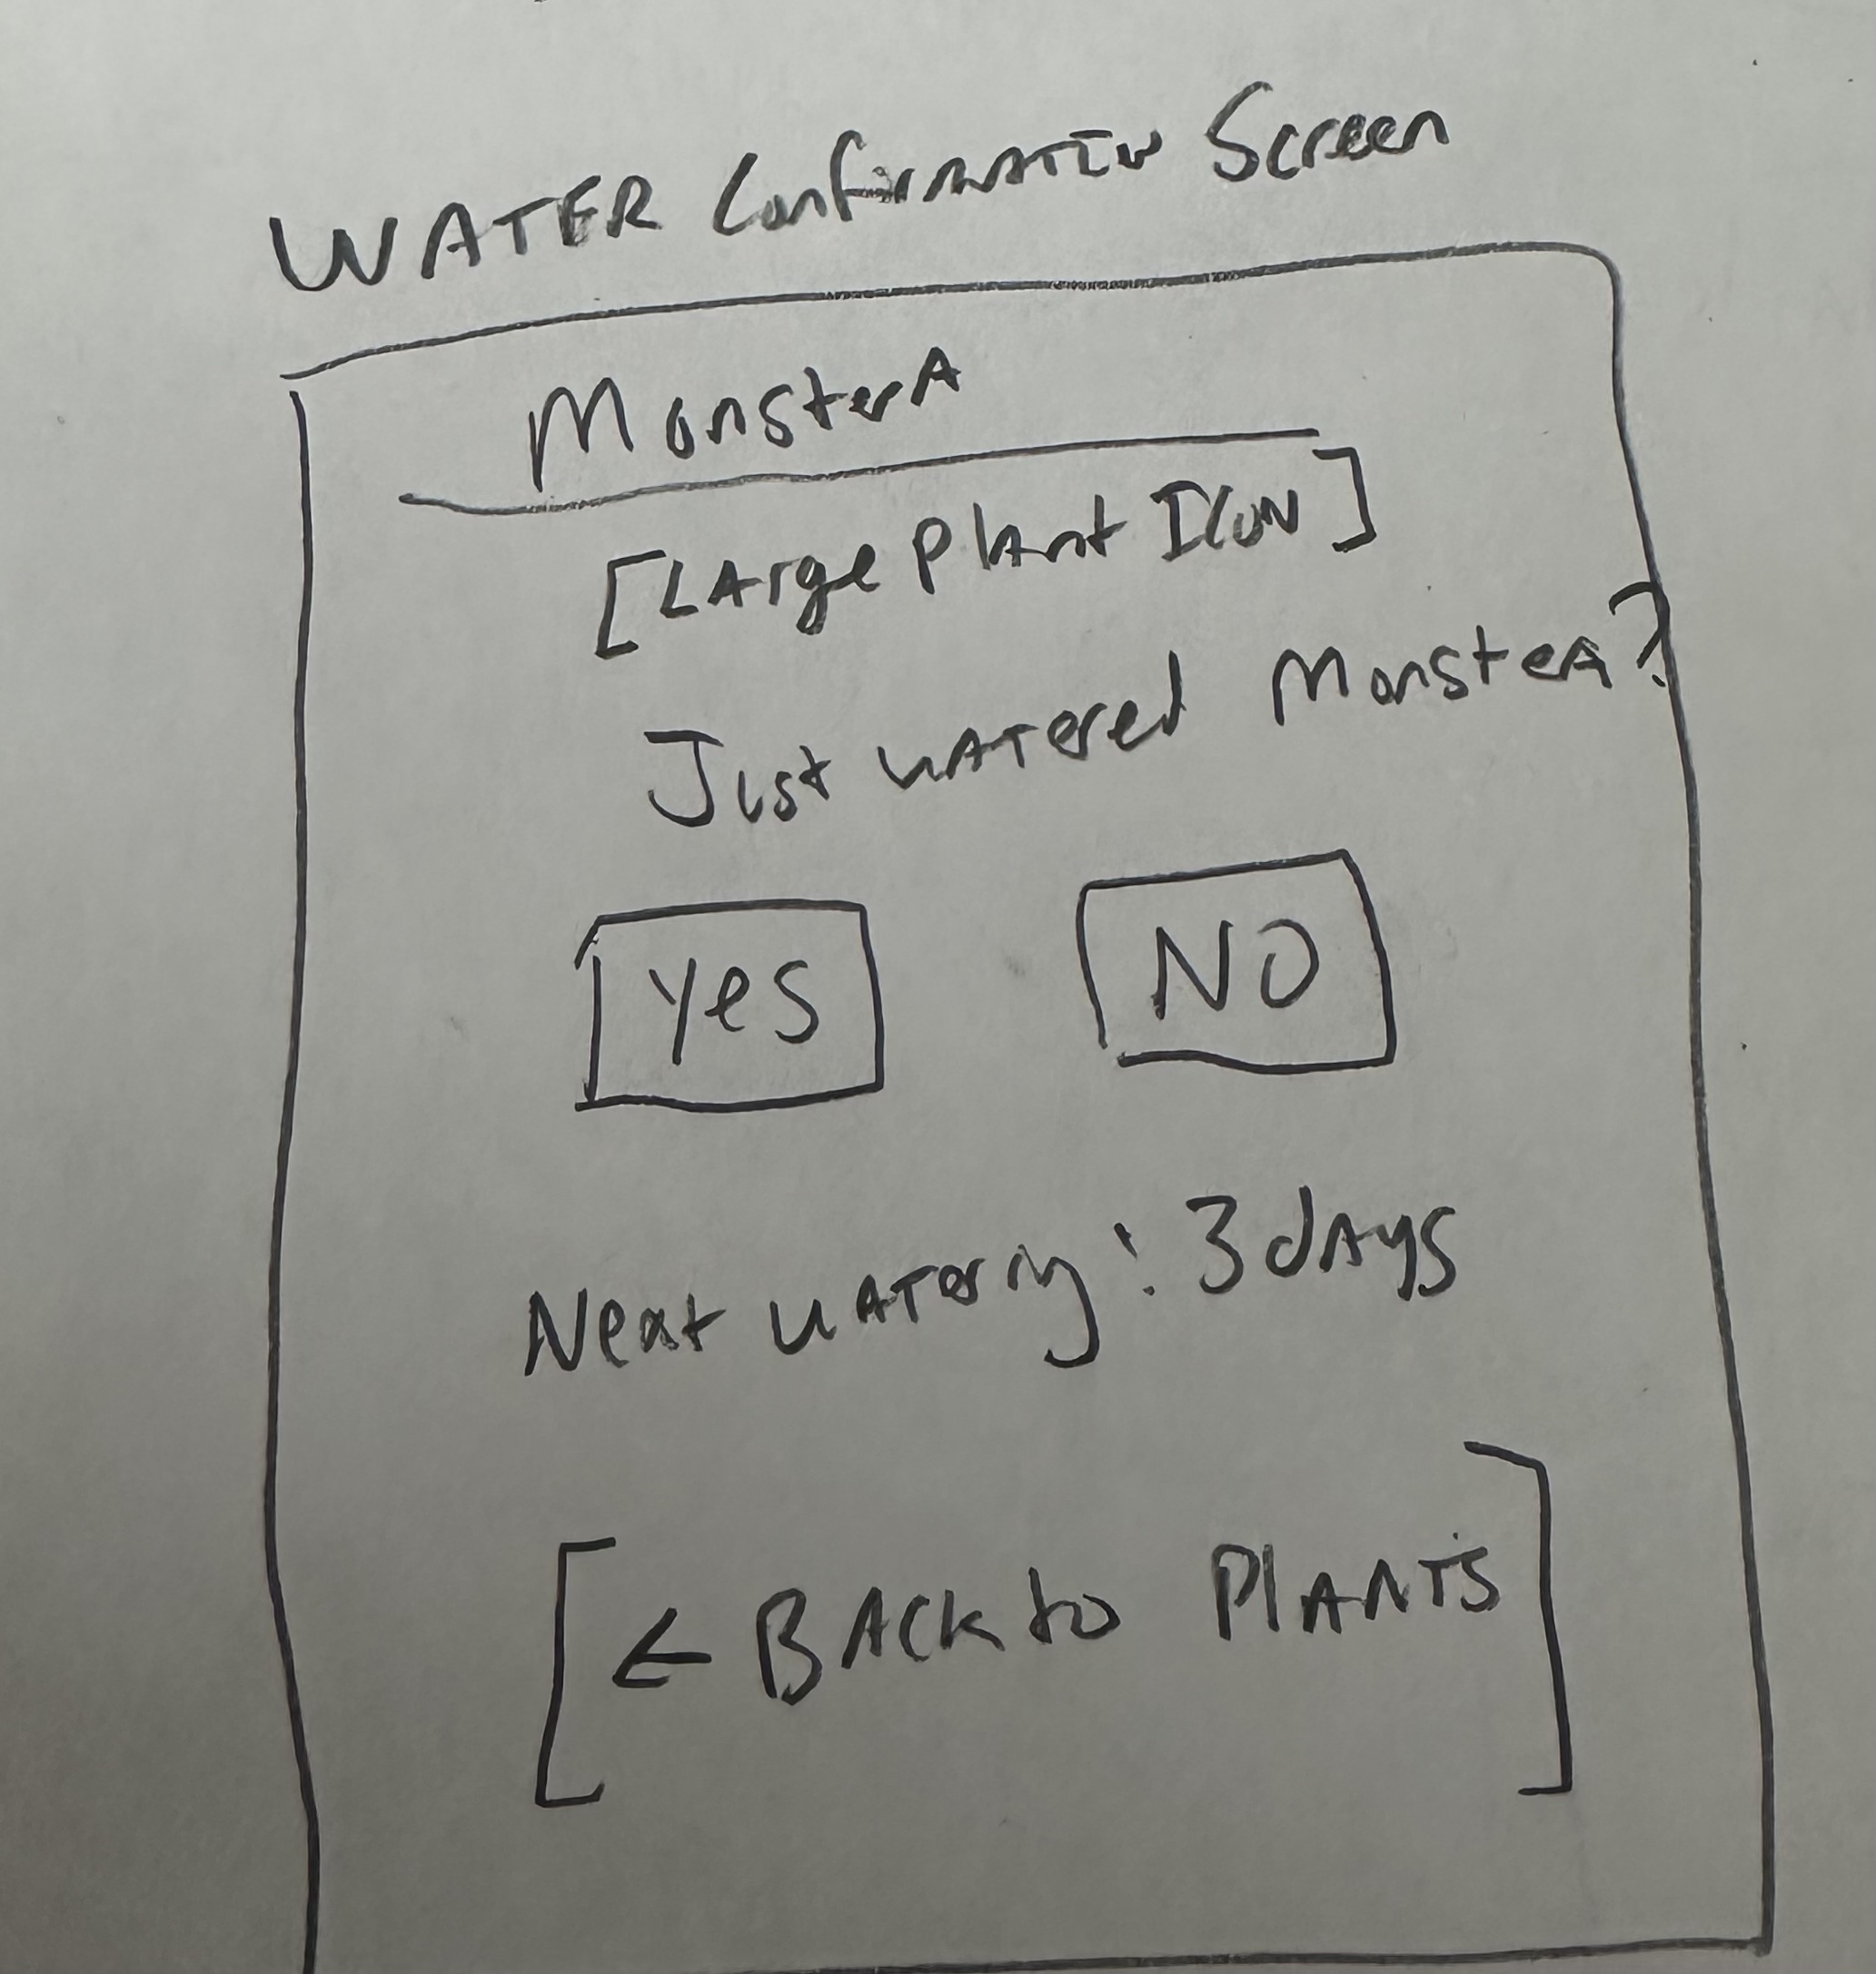 WATER Confirmation Screen
MonsterA
[LArge Plant ICON]
Just wATered MonsteA?
yes
NO
Next wATering: 3 dAys
[← BAck to PlANTS]